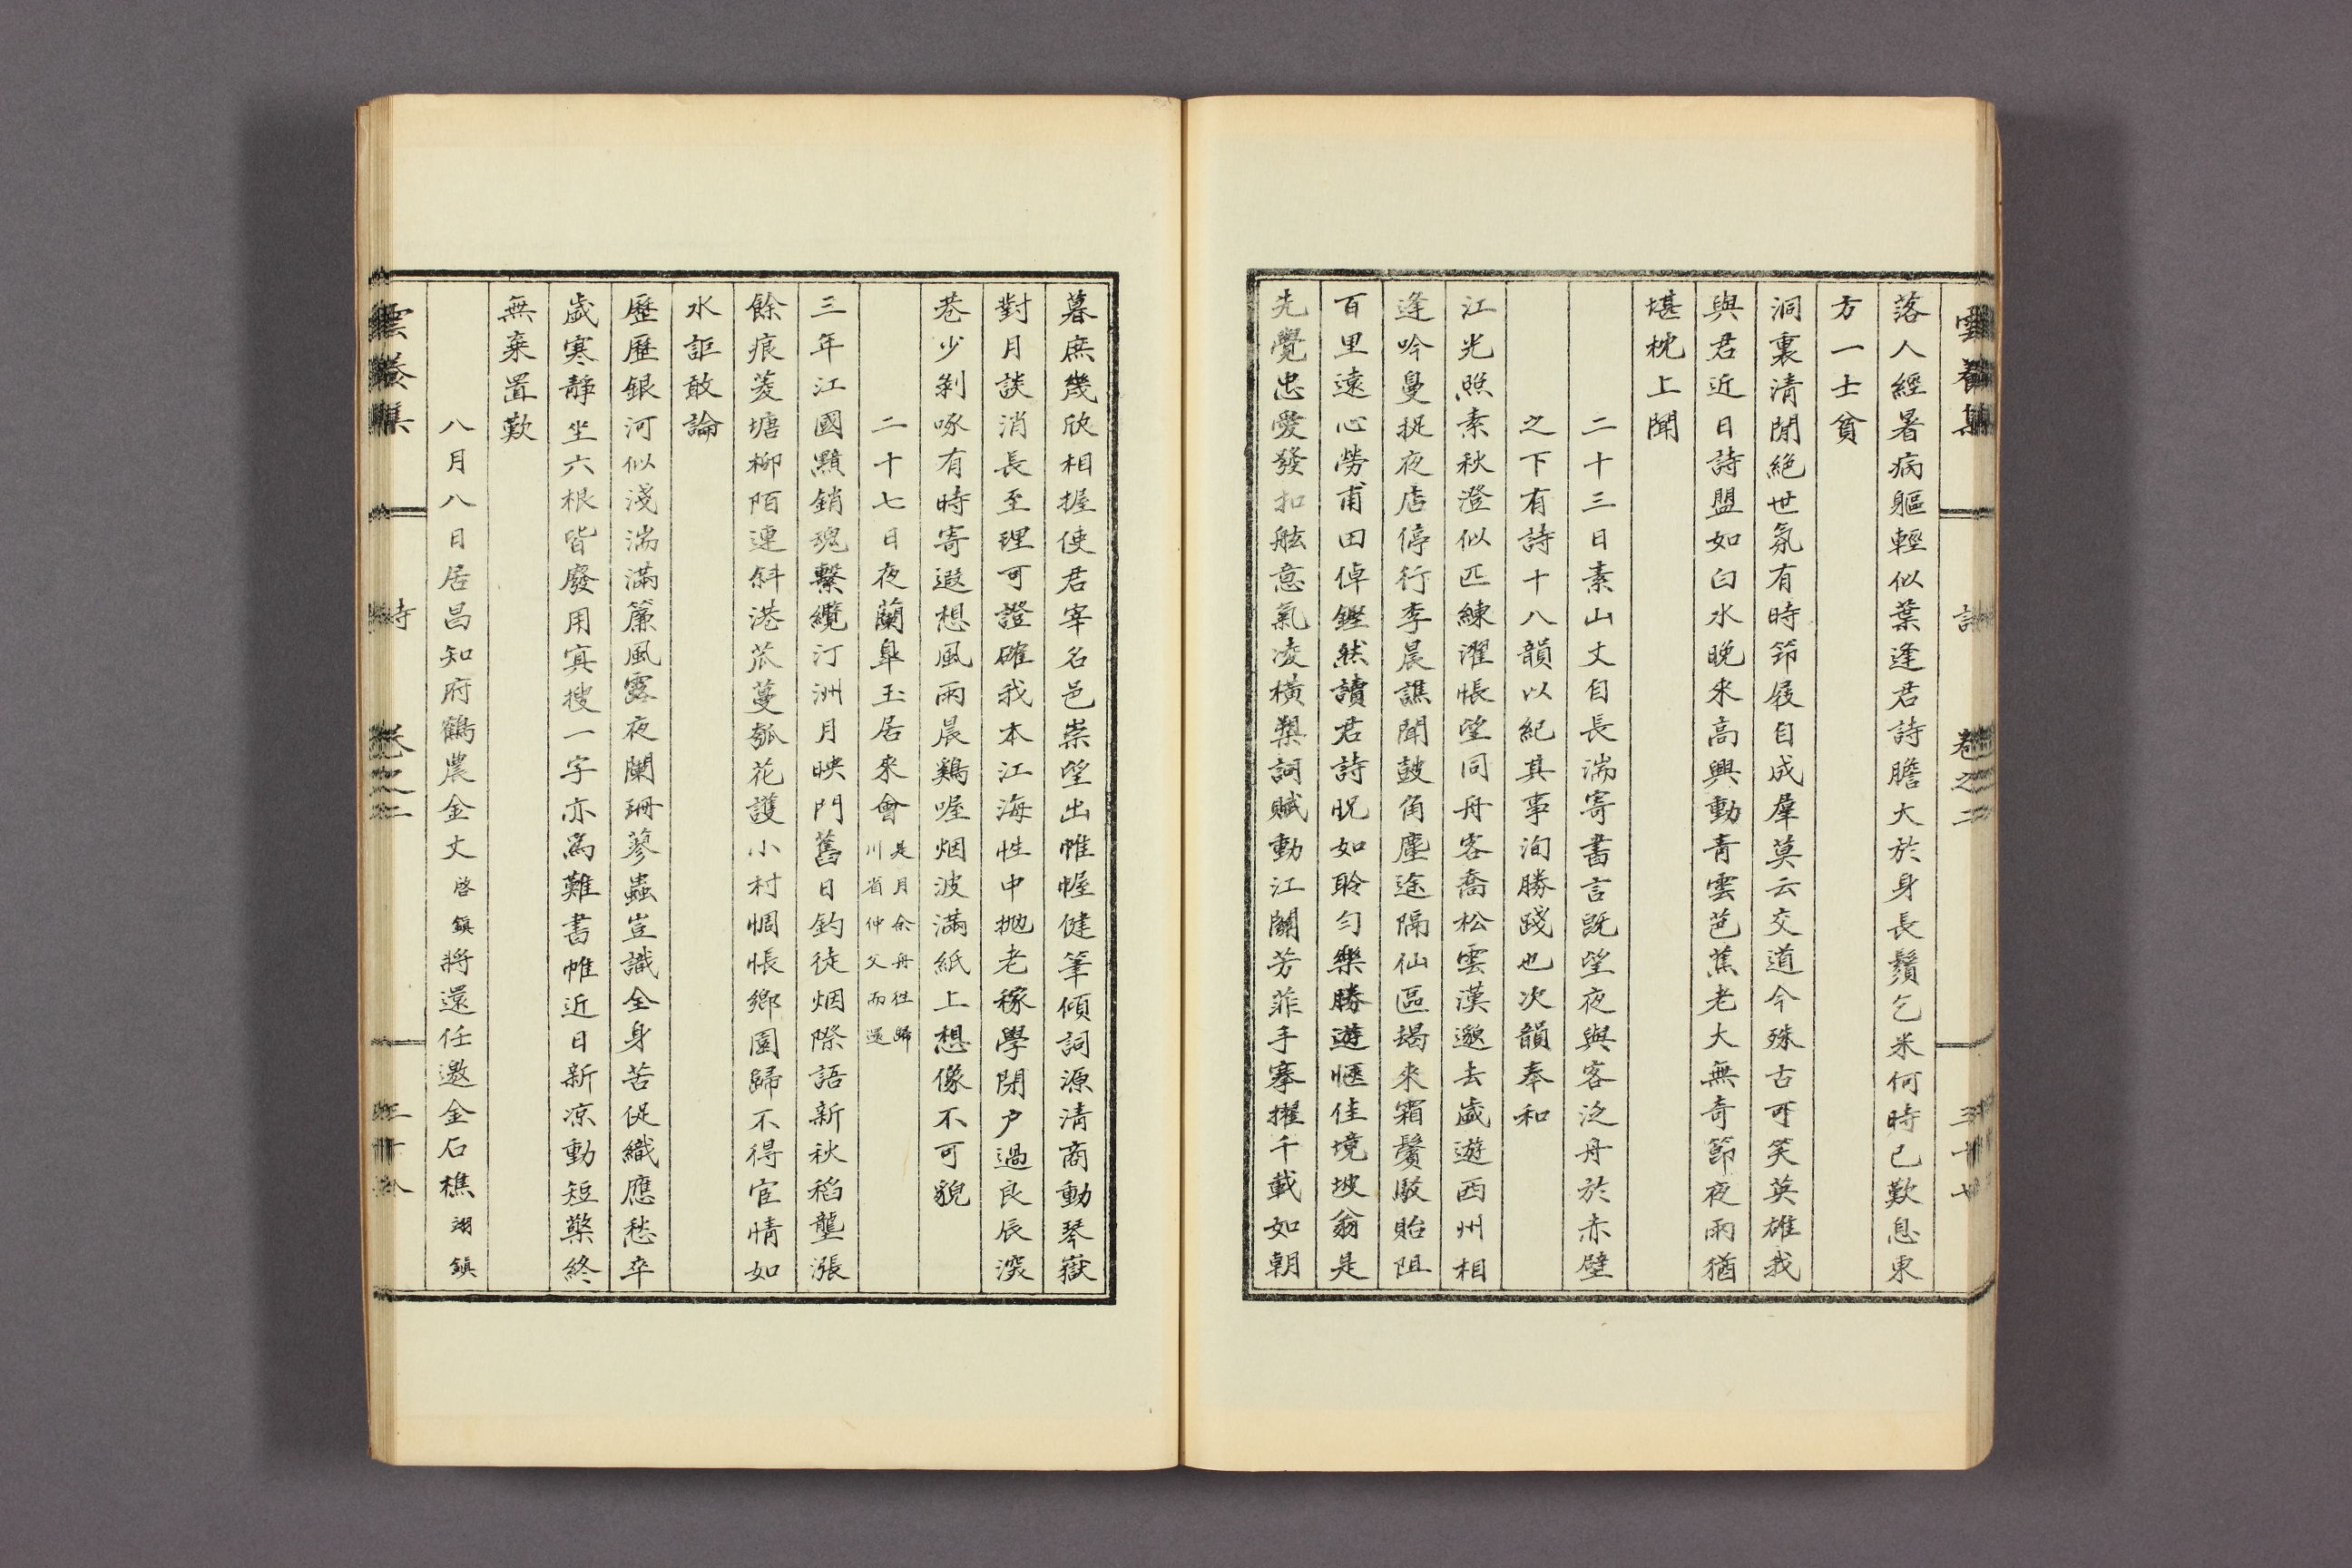 雲養集 詩 卷之二 三十七
落人經暑病軀輕似葉逢君詩膽大於身長鬚乞米何時已歎息東
方一士貧
洞裏清閒絕世氛有時筇屐自成羣莫云交道今殊古可笑英雄我
與君近日詩盟如白水晚來高興動青雲芭蕉老大無奇節夜雨猶
堪枕上聞
二十三日素山丈自長湍寄書言旣望夜與客泛舟於赤壁
之下有詩十八韻以紀其事洵勝踐也次韻奉和
江光照素秋澄似匹練濯悵望同舟客喬松雲漢邈去歲遊西州相
逢吟曼捉夜店停行李晨譙聞鼓角塵途隔仙區朅來霜鬢駁貽阻
百里遠心勞甫田倬鏗然讀君詩怳如聆勻樂勝遊愜佳境坡翁是
先覺忠愛發扣舷意氣凌橫槊詞賦動江關芳菲手搴擢千載如朝
暮庶幾欣相握使君宰名邑崇望出帷幄健筆傾詞源清商動琴嶽
對月談消長至理可證確我本江海性中抛老稼學閉户過良辰深
巷少剝啄有時寄遐想風雨晨鷄喔烟波滿紙上想像不可貌
二十七日夜蘭皐玉居來會是月余舟往歸川省仲父而還
三年江國黯銷魂繫纜汀洲月映門舊日釣徒烟際語新秋稻壟漲
餘痕菱塘柳陌連斜港苽蔓瓠花護小村惆悵鄉園歸不得宦情如
水詎敢論
歷歷銀河似淺湍滿簾風露夜闌珊蓼蟲豈識全身苦促織應愁卒
歲寒靜坐六根皆廢用寘搜一字亦爲難書帷近日新凉動短檠終
無棄置歎
八月八日居昌知府鶴農金丈啓鎭將還任邀金石樵翊鎭
雲養集 詩 卷之二 三十八